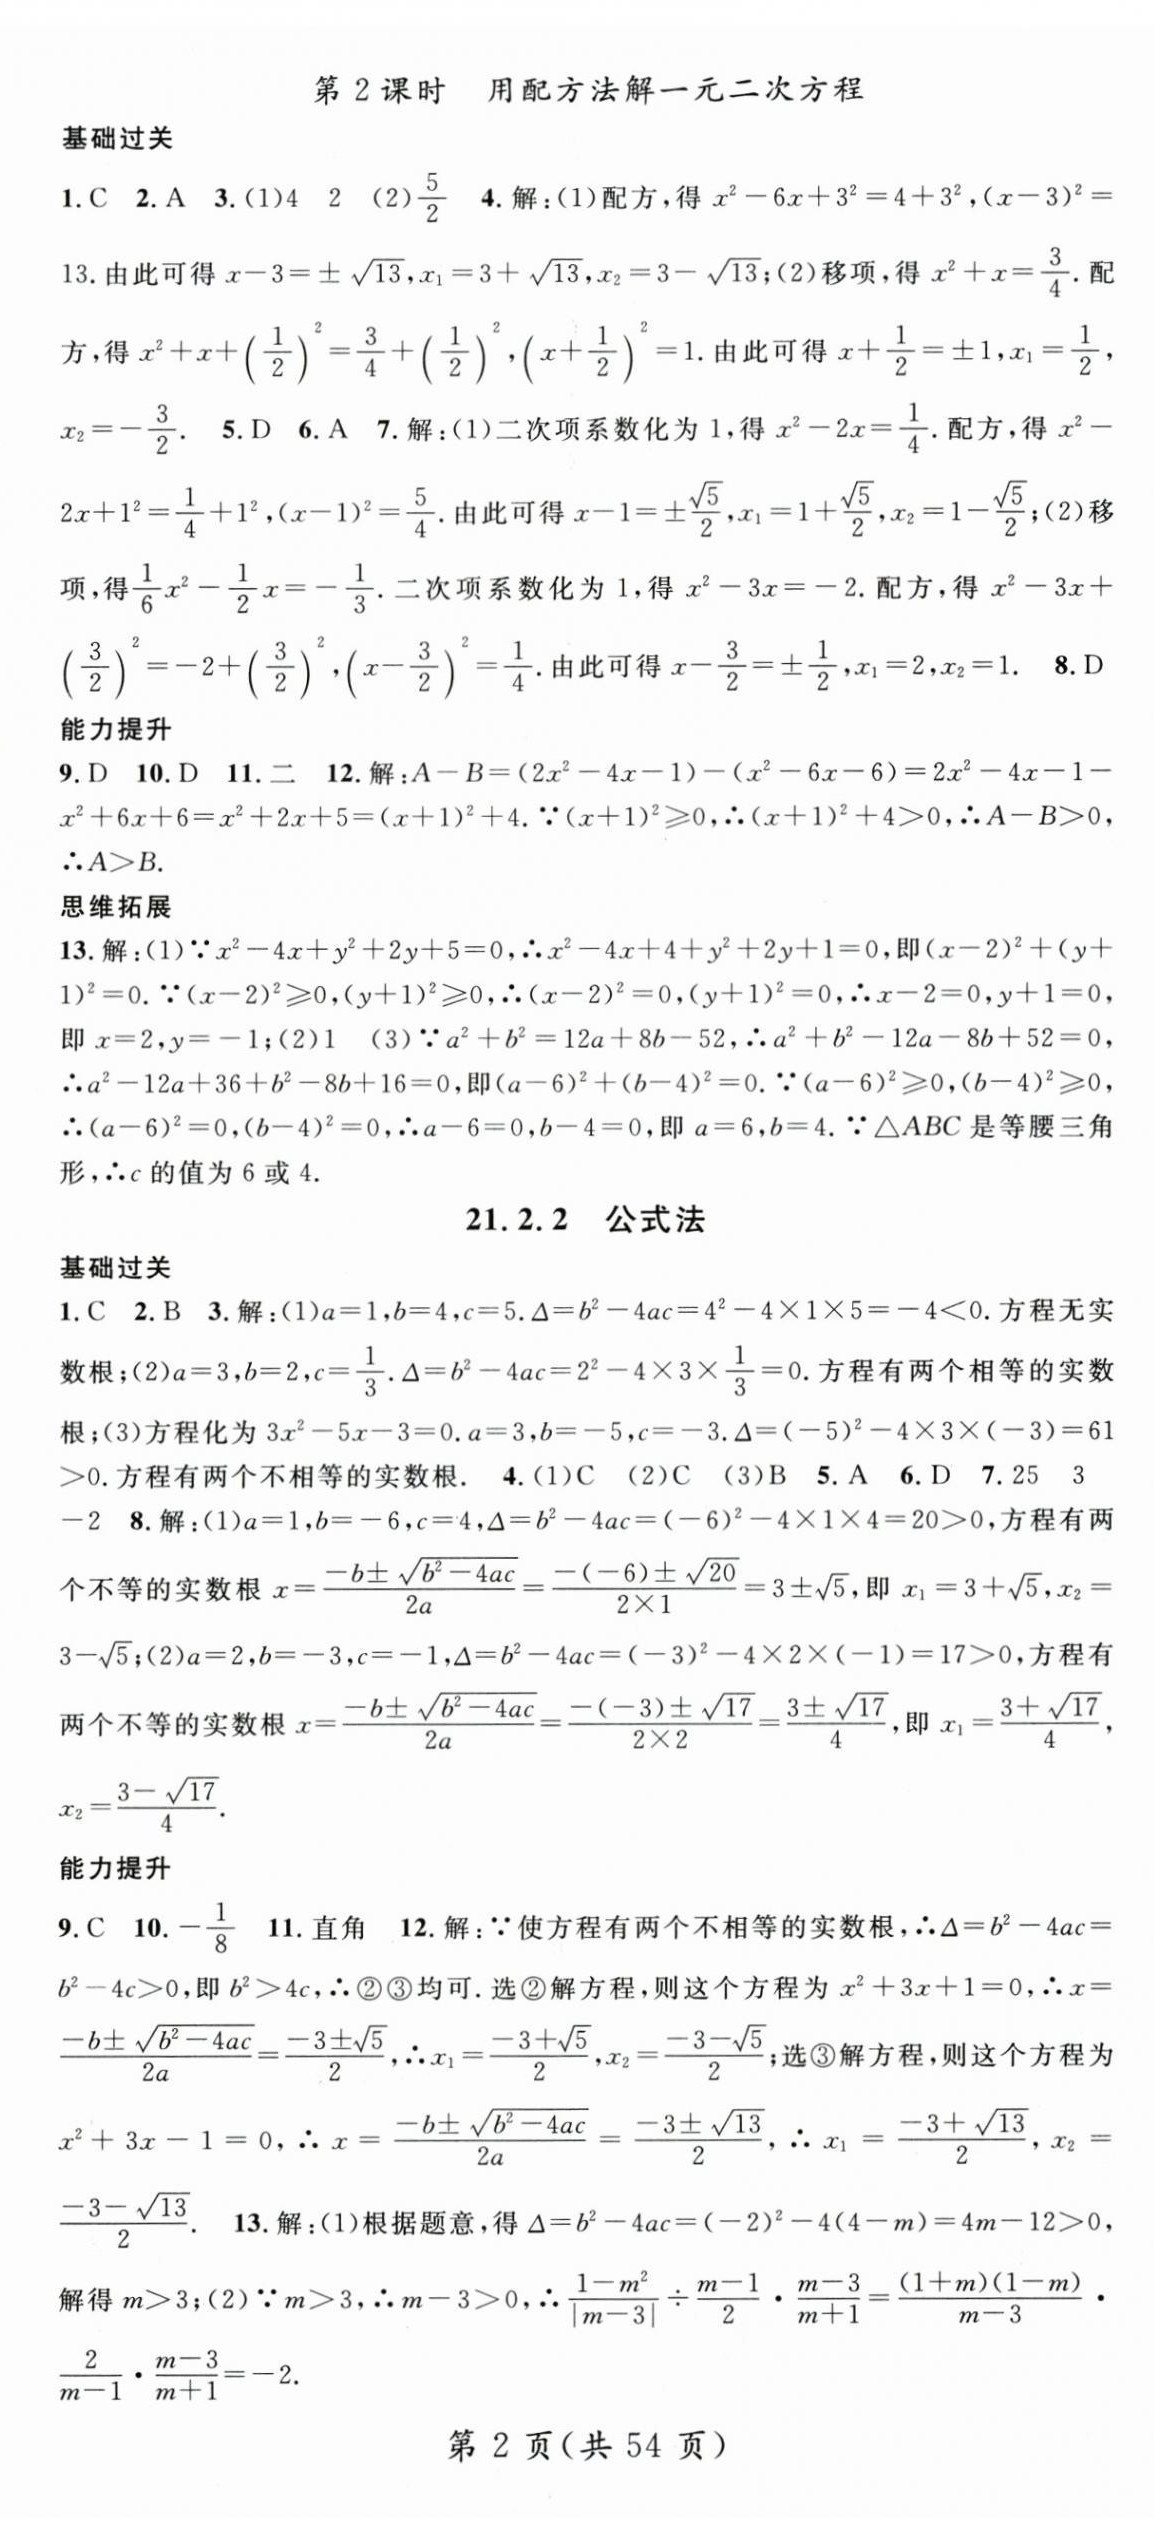 第 2 课时　用配方法解一元二次方程
基础过关
1. C　2. A　3. (1)4　2　(2)$\frac{5}{2}$　4. 解:(1)配方,得 $x^2-6x+3^2=4+3^2$,$(x-3)^2=$
13. 由此可得 $x-3=\pm\sqrt{13}$,$x_1=3+\sqrt{13}$,$x_2=3-\sqrt{13}$;(2)移项,得 $x^2+x=\frac{3}{4}$. 配
方,得 $x^2+x+\left(\frac{1}{2}\right)^2=\frac{3}{4}+\left(\frac{1}{2}\right)^2$,$\left(x+\frac{1}{2}\right)^2=1$. 由此可得 $x+\frac{1}{2}=\pm1$,$x_1=\frac{1}{2}$,
$x_2=-\frac{3}{2}$.　5. D　6. A　7. 解:(1)二次项系数化为 1,得 $x^2-2x=\frac{1}{4}$. 配方,得 $x^2-$
$2x+1^2=\frac{1}{4}+1^2$,$(x-1)^2=\frac{5}{4}$. 由此可得 $x-1=\pm\frac{\sqrt{5}}{2}$,$x_1=1+\frac{\sqrt{5}}{2}$,$x_2=1-\frac{\sqrt{5}}{2}$;(2)移
项,得$\frac{1}{6}x^2-\frac{1}{2}x=-\frac{1}{3}$. 二次项系数化为 1,得 $x^2-3x=-2$. 配方,得 $x^2-3x+$
$\left(\frac{3}{2}\right)^2=-2+\left(\frac{3}{2}\right)^2$,$\left(x-\frac{3}{2}\right)^2=\frac{1}{4}$. 由此可得 $x-\frac{3}{2}=\pm\frac{1}{2}$,$x_1=2$,$x_2=1$.　8. D
能力提升
9. D　10. D　11. 二　12. 解:$A-B=(2x^2-4x-1)-(x^2-6x-6)=2x^2-4x-1-$
$x^2+6x+6=x^2+2x+5=(x+1)^2+4$. ∵$(x+1)^2≥0$,∴$(x+1)^2+4>0$,∴$A-B>0$,
∴$A>B$.
思维拓展
13. 解:(1)∵$x^2-4x+y^2+2y+5=0$,∴$x^2-4x+4+y^2+2y+1=0$,即$(x-2)^2+(y+$
$1)^2=0$. ∵$(x-2)^2≥0$,$(y+1)^2≥0$,∴$(x-2)^2=0$,$(y+1)^2=0$,∴$x-2=0$,$y+1=0$,
即 $x=2$,$y=-1$;(2)1　(3)∵$a^2+b^2=12a+8b-52$,∴$a^2+b^2-12a-8b+52=0$,
∴$a^2-12a+36+b^2-8b+16=0$,即$(a-6)^2+(b-4)^2=0$. ∵$(a-6)^2≥0$,$(b-4)^2≥0$,
∴$(a-6)^2=0$,$(b-4)^2=0$,∴$a-6=0$,$b-4=0$,即 $a=6$,$b=4$. ∵△ABC 是等腰三角
形,∴c 的值为 6 或 4.
21. 2. 2　公式法
基础过关
1. C　2. B　3. 解:(1)$a=1$,$b=4$,$c=5$. $Δ=b^2-4ac=4^2-4×1×5=-4<0$. 方程无实
数根;(2)$a=3$,$b=2$,$c=\frac{1}{3}$. $Δ=b^2-4ac=2^2-4×3×\frac{1}{3}=0$. 方程有两个相等的实数
根;(3)方程化为 $3x^2-5x-3=0$. $a=3$,$b=-5$,$c=-3$. $Δ=(-5)^2-4×3×(-3)=61$
>0. 方程有两个不相等的实数根.　4. (1)C　(2)C　(3)B　5. A　6. D　7. 25　3
-2　8. 解:(1)$a=1$,$b=-6$,$c=4$,$Δ=b^2-4ac=(-6)^2-4×1×4=20>0$,方程有两
个不等的实数根 $x=\frac{-b\pm\sqrt{b^2-4ac}}{2a}=\frac{-(-6)\pm\sqrt{20}}{2×1}=3\pm\sqrt{5}$,即 $x_1=3+\sqrt{5}$,$x_2=$
$3-\sqrt{5}$;(2)$a=2$,$b=-3$,$c=-1$,$Δ=b^2-4ac=(-3)^2-4×2×(-1)=17>0$,方程有
两个不等的实数根 $x=\frac{-b\pm\sqrt{b^2-4ac}}{2a}=\frac{-(-3)\pm\sqrt{17}}{2×2}=\frac{3\pm\sqrt{17}}{4}$,即 $x_1=\frac{3+\sqrt{17}}{4}$,
$x_2=\frac{3-\sqrt{17}}{4}$.
能力提升
9. C　10. $-\frac{1}{8}$　11. 直角　12. 解:∵使方程有两个不相等的实数根,∴$Δ=b^2-4ac=$
$b^2-4c>0$,即 $b^2>4c$,∴②③均可. 选②解方程,则这个方程为 $x^2+3x+1=0$,∴$x=$
$\frac{-b\pm\sqrt{b^2-4ac}}{2a}=\frac{-3\pm\sqrt{5}}{2}$,∴$x_1=\frac{-3+\sqrt{5}}{2}$,$x_2=\frac{-3-\sqrt{5}}{2}$;选③解方程,则这个方程为
$x^2+3x-1=0$,∴$x=\frac{-b\pm\sqrt{b^2-4ac}}{2a}=\frac{-3\pm\sqrt{13}}{2}$,∴$x_1=\frac{-3+\sqrt{13}}{2}$,$x_2=$
$\frac{-3-\sqrt{13}}{2}$.　13. 解:(1)根据题意,得 $Δ=b^2-4ac=(-2)^2-4(4-m)=4m-12>0$,
解得 $m>3$;(2)∵$m>3$,∴$m-3>0$,∴$\frac{1-m^2}{|m-3|}÷\frac{m-1}{2}·\frac{m-3}{m+1}=\frac{(1+m)(1-m)}{m-3}·$
$\frac{2}{m-1}·\frac{m-3}{m+1}=-2$.
第 2 页(共 54 页)